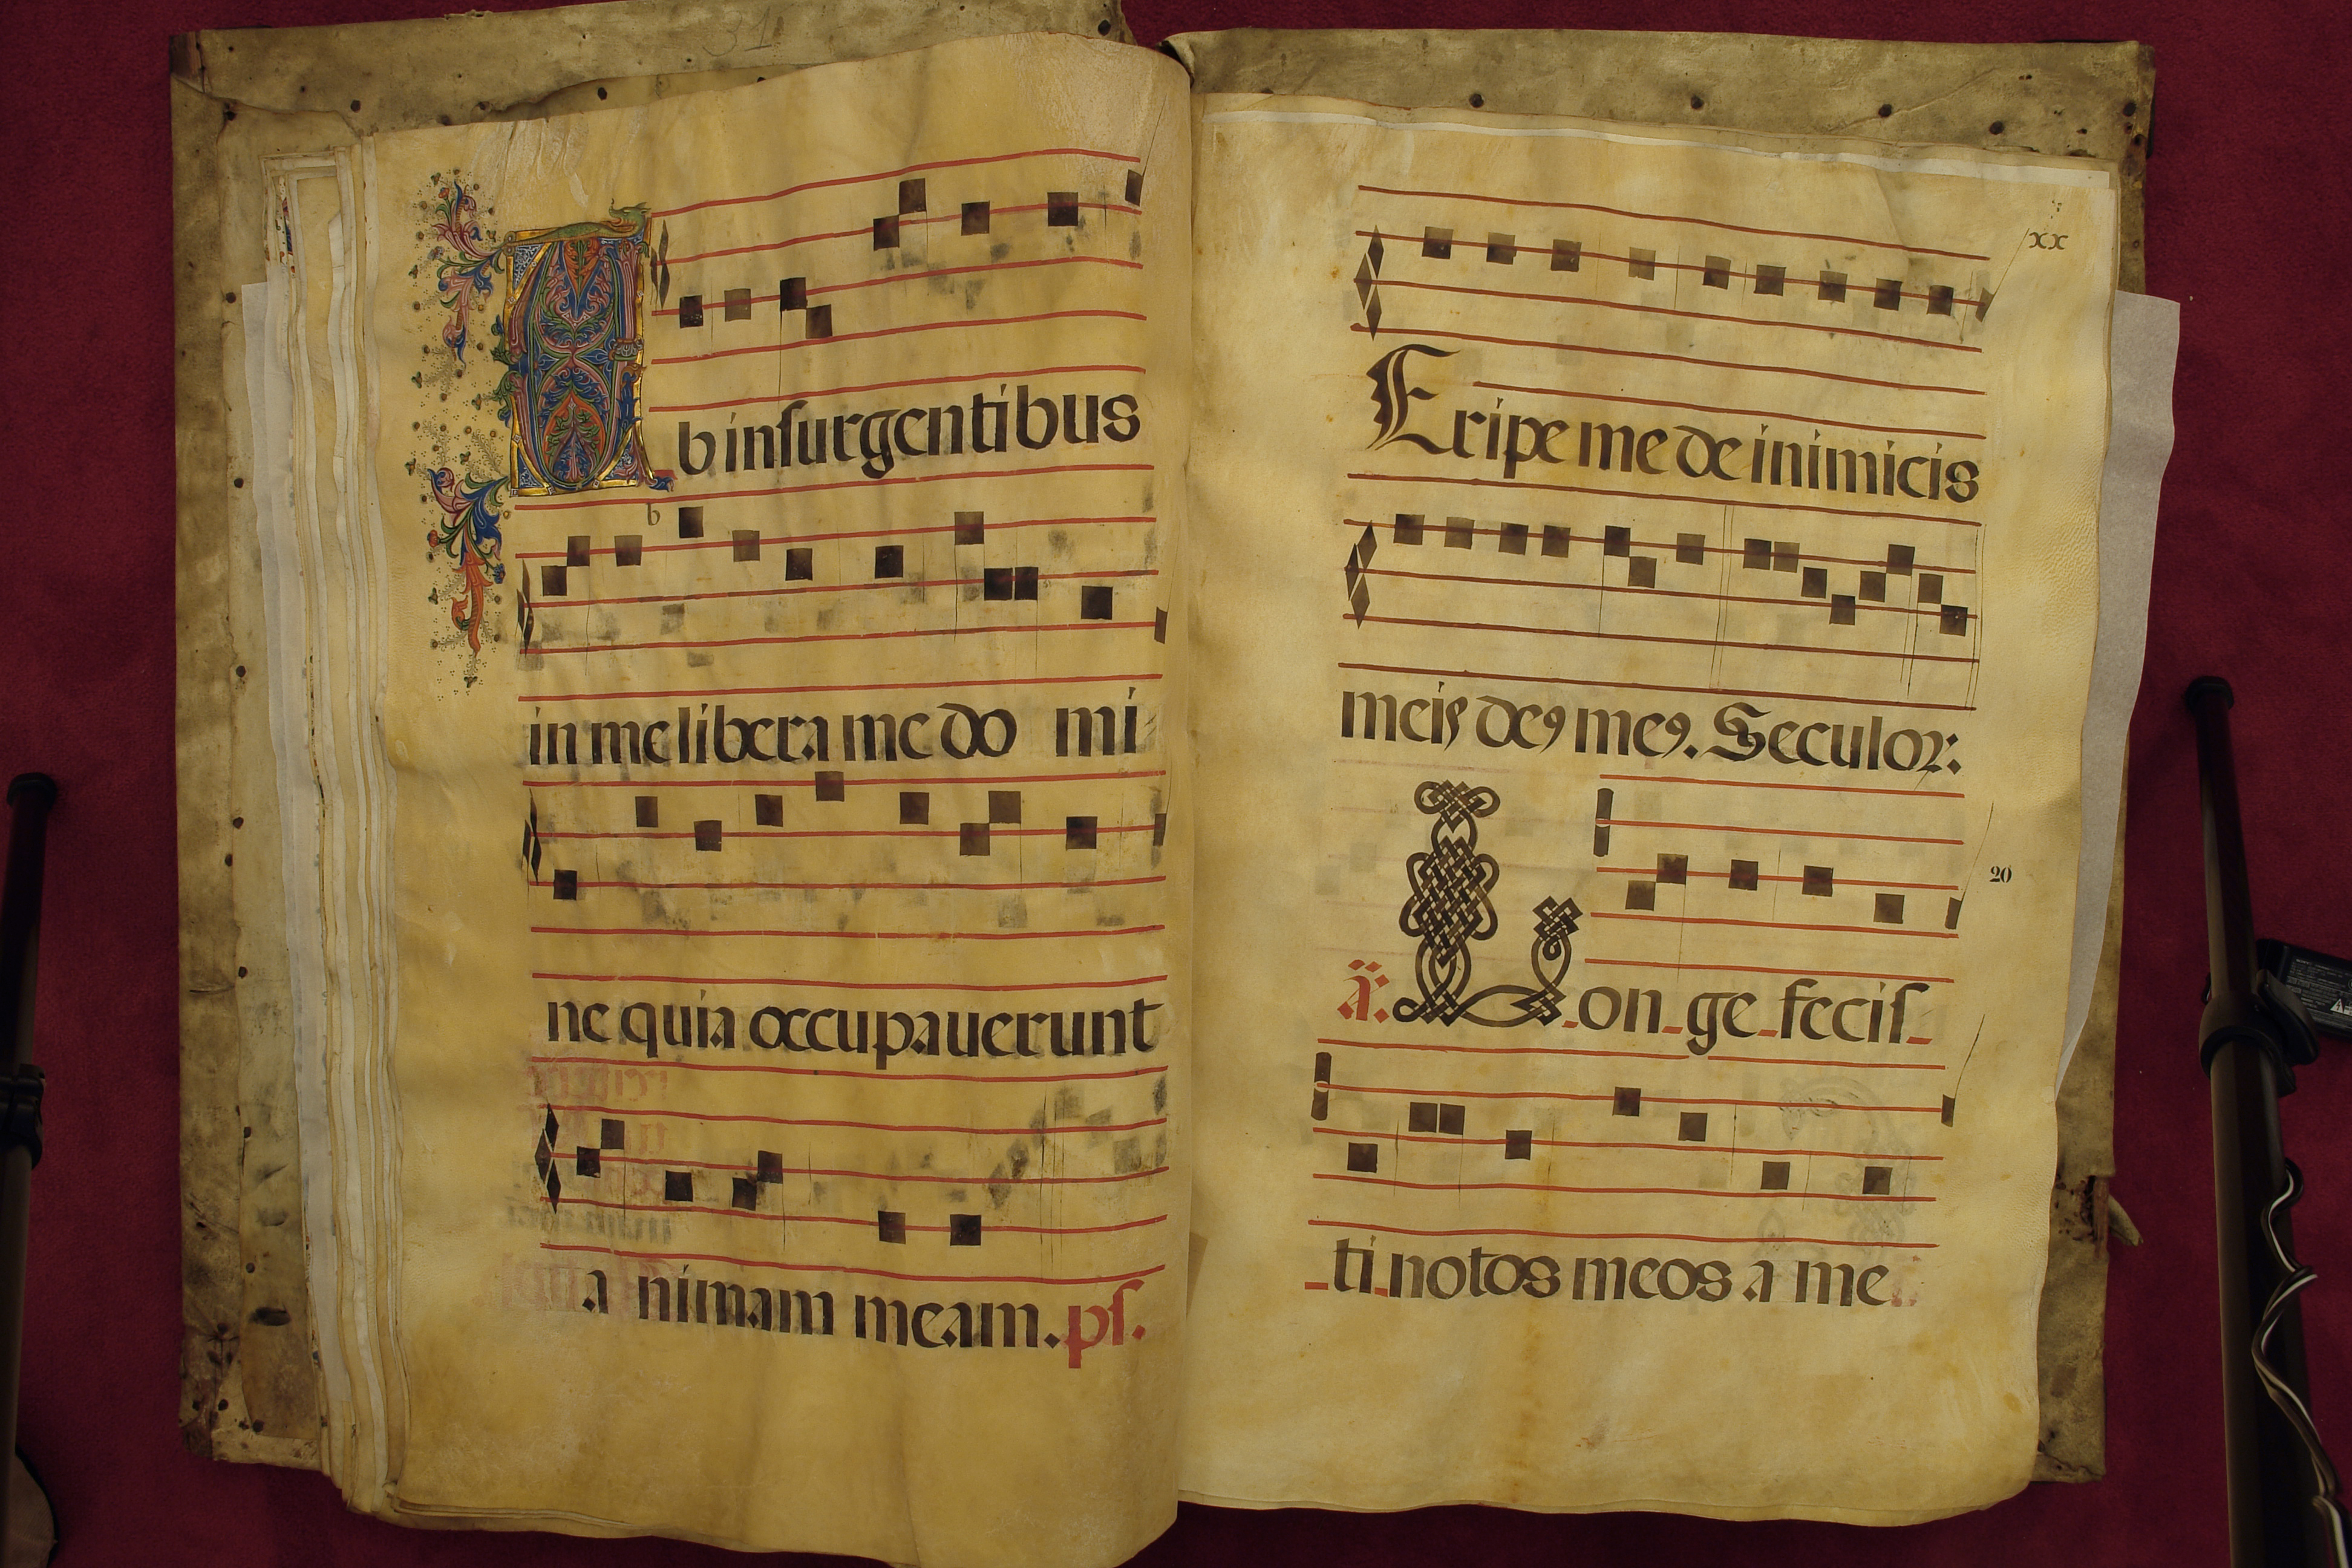 31
Ab insurgentibus
b
in me libera me do mi
ne quia occupauerunt
a nimam meam. ps.
xx
Eripe me de inimicis
meis deꝰ meꝰ. Seculoꝝ:
20
a: Lon ge fecis
ti notos meos a me